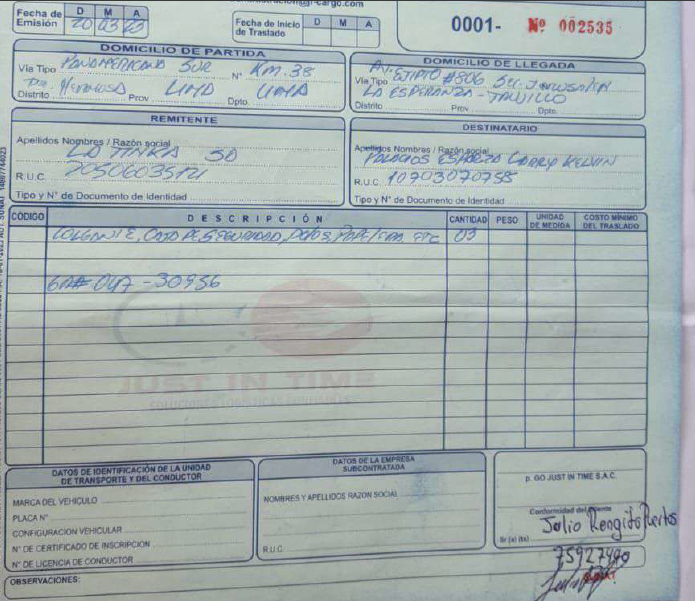 cargo.com
Fecha de Emisión D M A
20 03 23
Fecha de Inicio de Traslado D M A
0001- Nº 002535
DOMICILIO DE PARTIDA
Vía Tipo PANAMERICANA SUR Nº Km. 38
Pta Hermosa LIMA LIMA
Distrito Prov Dpto.
DOMICILIO DE LLEGADA
AV. EJIPTO #806 Sec. Jerusalen
Vía Tipo
LA ESPERANZA - TRUJILLO
Distrito Prov. Dpto.
REMITENTE
Apellidos Nombres / Razón social
LA TINKA SA
R.U.C. 20506035121
Tipo y N° de Documento de Identidad
DESTINATARIO
Apellidos Nombres / Razón social
PALACIOS LARRY KELVIN
R.U.C. 10703070758
Tipo y N° de Documento de Identidad
CÓDIGO DESCRIPCIÓN CANTIDAD PESO UNIDAD DE MEDIDA COSTO MÍNIMO DEL TRASLADO
COLGANTE, CAJA DE SEGURIDAD, 03
047 - 30956
JUST IN TIME
DATOS DE IDENTIFICACIÓN DE LA UNIDAD DE TRANSPORTE Y DEL CONDUCTOR
MARCA DEL VEHICULO
PLACA N°
CONFIGURACION VEHICULAR
N° DE CERTIFICADO DE INSCRIPCION
N° DE LICENCIA DE CONDUCTOR
DATOS DE LA EMPRESA SUBCONTRATADA
NOMBRES Y APELLIDOS RAZON SOCIAL
R.U.C.
p. GO JUST IN TIME S.A.C.
Conformidad del Cliente
Julio Rengifo
Sr (a) (ta)
75927490
OBSERVACIONES: